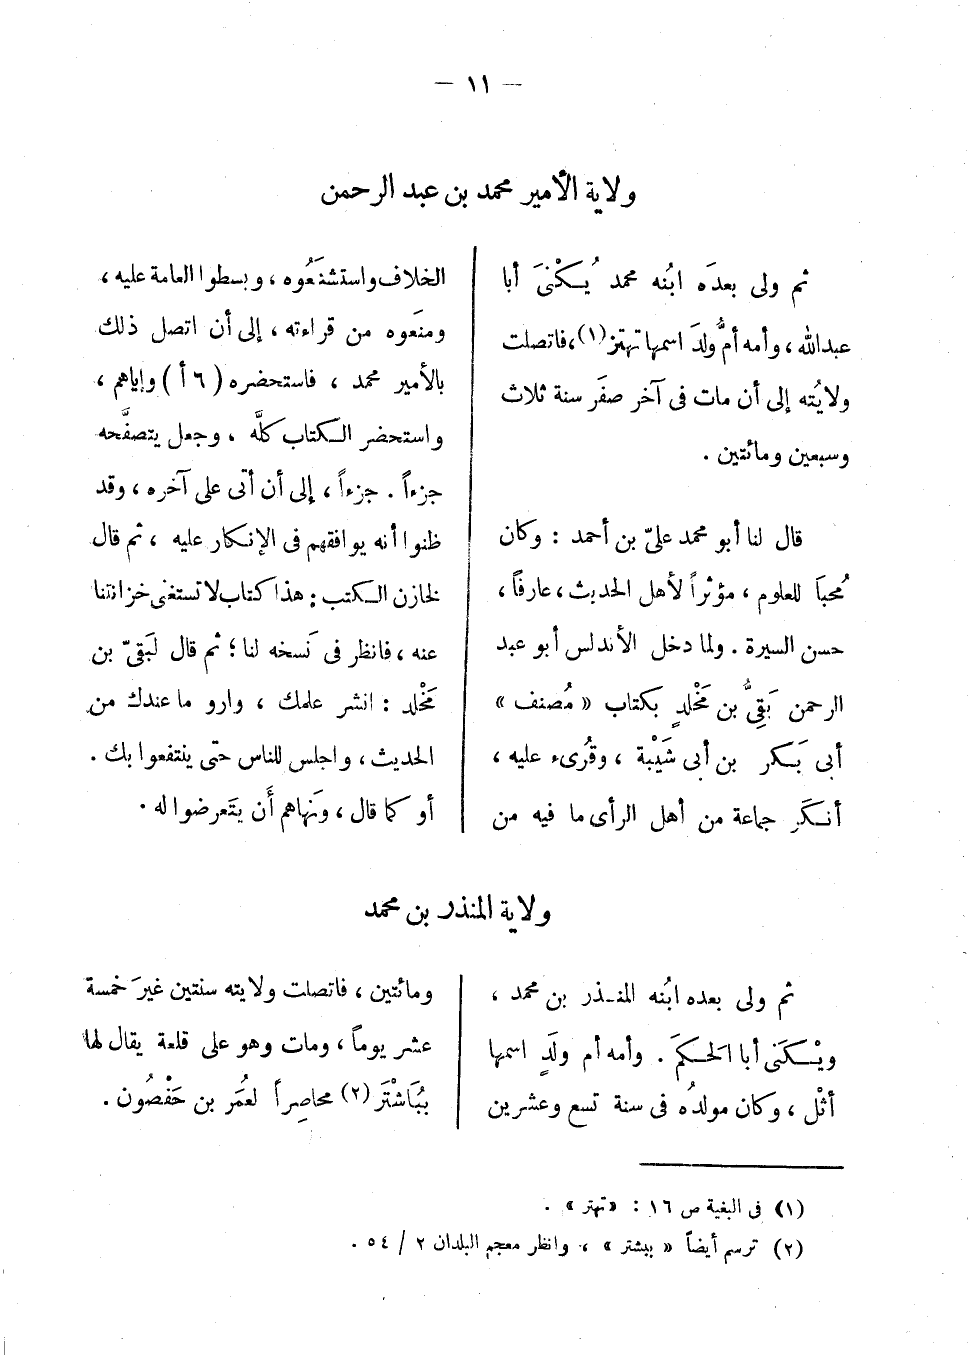 — ١١ —
ولاية الأمير محمد بن عبد الرحمن
ثم ولى بعدَه ابنُه محمد يُكْنَى أبا
عبدالله ، وأمه أمُّ ولَد اسمها تهتز(١)،فاتصلت
ولايُته إلى أن مات فى آخر صفَر سنة ثلاث
وسبعين ومائتين .
قال لنا أبو محمد علىّ بن أحمد : وكان
مُحبا للعلوم ، مؤثراً لأهل الحديث ، عارفاً ،
حسن السيرة . ولما دخل الأندلس أبو عبد
الرحمن بَقِىُّ بن مَخْلدٍ بكتاب « مُصنف »
أبى بَكر بن أبى شَيْبة ، وقُرىء عليه ،
أنكَر جماعة من أهل الرأى ما فيه من
الخلاف واستشنَعُوه ، وبسطوا العامة عليه ،
ومنَعوه من قراءته ، إلى أن اتصل ذلك
بالأمير محمد ، فاستحضره ( ٦ أ ) وإياهم ،
واستحضر الكتاب كلَّه ، وجعل يتصفَّحه
جزءاً . جزءاً ، إلى أن أتى على آخره ، وقد
ظنوا أنه يوافقهم فى الإنكار عليه ، ثم قال
لخازن الكتب : هذا كتاب لا تستغنى خزانتنا
عنه ، فانظر فى نَسخه لنا ؛ ثم قال لبَقىّ بن
مَخْلد : انشر علمك ، وارو ما عندك من
الحديث ، واجلس للناس حتى ينتفعوا بك .
أو كما قال ، ونَهاهم أَن يتَعرضوا له .
ولاية المنذر بن محمد
ثم ولى بعده ابنُه المنذر بن محمد ،
ويْكَنى أبا الحَكَم . وأمه أم ولَدٍ اسمها
أثْل ، وكان مولدُه فى سنة تسع وعشرين
ومائتين ، فاتصلت ولايته سنتين غيرَ خمسة
عشر يوماً ، ومات وهو على قلعة يقال لها
بُبَاشْتَر (٢) محاصِراً لعُمَر بن حَفْصُون .
(١) فى البغية ص ١٦ : « تهتر » .
(٢) ترسم أيضاً « ببشتر » ، وانظر معجم البلدان ٢ / ٥٤ .